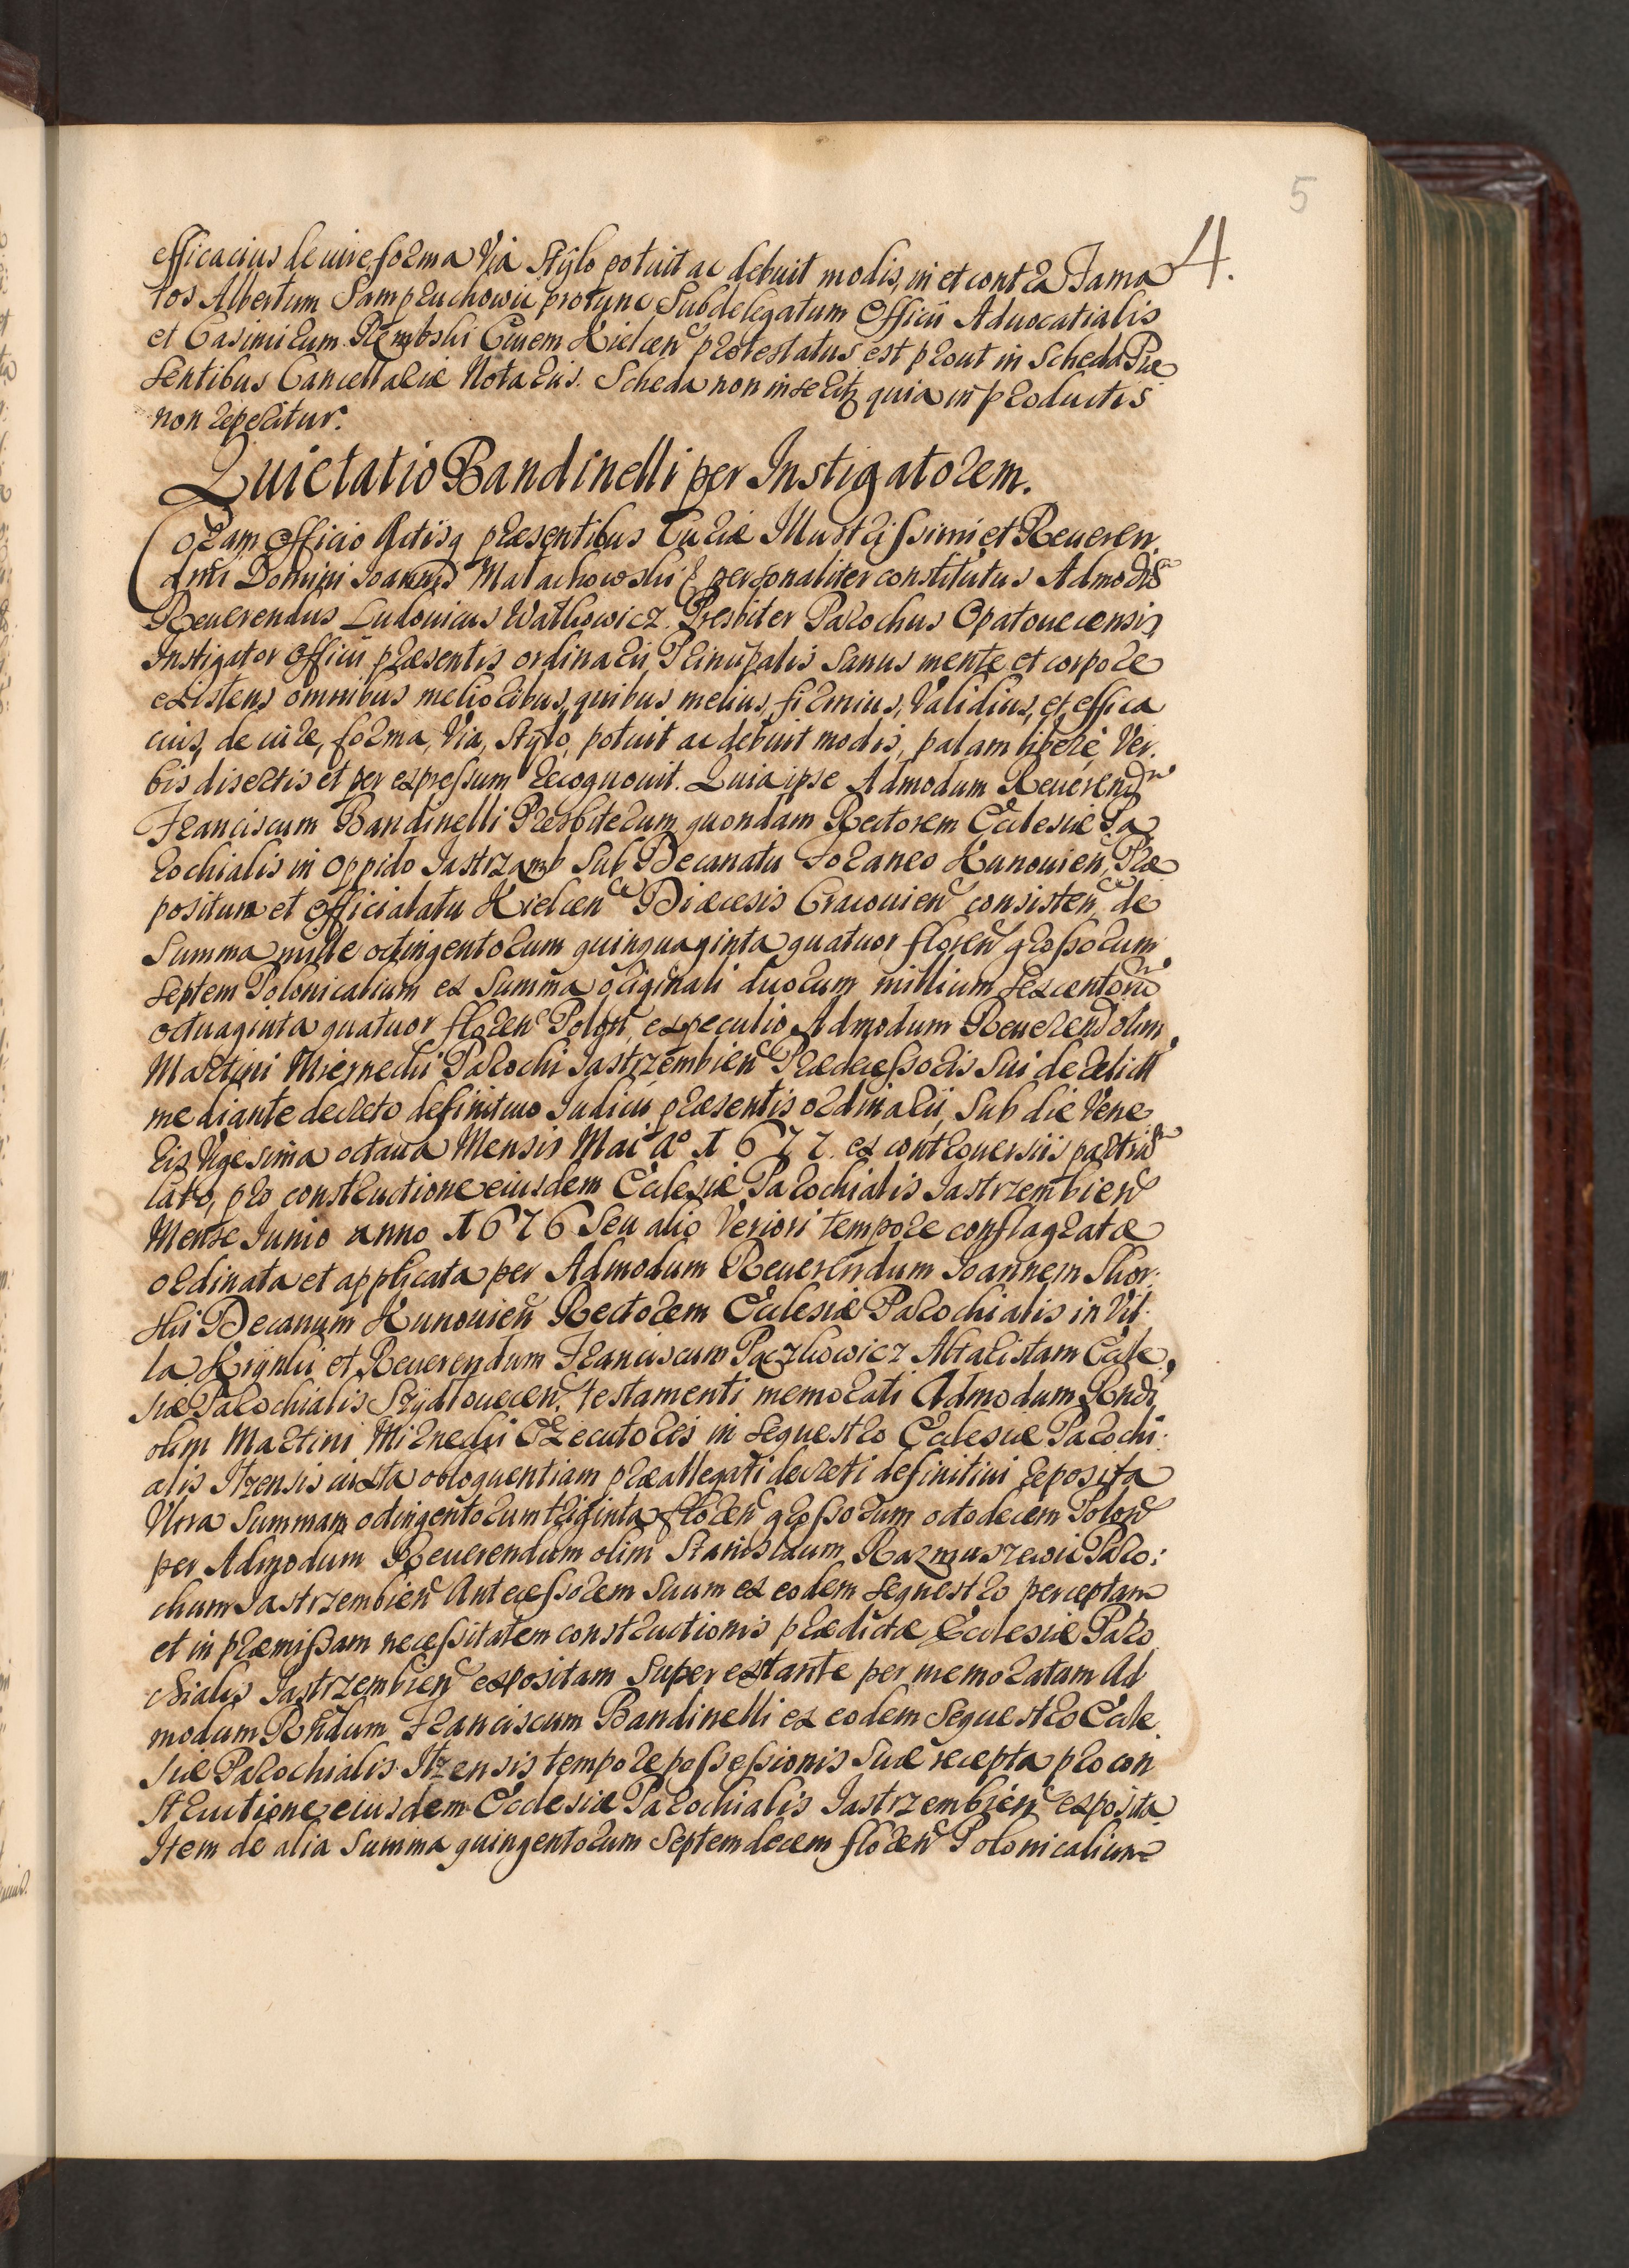 5
4.
efficacius de iure forma Via Stylo potuit ac debuit modis, in et contra Fama
tos Albertum Sampruchowic protunc Subdelegatum Officii Aduocatialis
et Casimirum Rembski Ciuem Kielcen protestatus est prout in Scheda Præ
sentibus Cancellariæ Notarius. Scheda non inseritz quia in productis
non reperitur.
Quietatio Bandinelli per Instigatorem.
Coram Officio Actisq præsentibus Curiæ Illustrissimi et Reueren
dmi Domini Joannis Małachowski & personaliter constitutus Admodū
Reuerendus Ludouicus Watkowicz Presbiter Parochus Opatouecensis
Instigator Officii præsentis ordinarii Principalis Sanus mente et corpore
existens omnibus melioribus, quibus melius, firmius, Validius, et effica
cius, de iure, forma, Via, Stylo, potuit ac debuit modis, palam liberè, Ver.
bis disertis et per expressum recognouit. Quia ipse Admodum Reuerendm
Franciscum Bandinelli Presbiterum quondam Rectorem Ecclesiæ Pa
rochialis in Oppido Jastrzamb Sub Decanatu foraneo Kunouien, Præ
positum et Officialatu Kielcen Diæcesis Cracouien consisten, de
Summa mille octingentorum quinquaginta quatuor floren grossorum
septem Polonicalium ex Summa originali duorum millium sexcentorū
octuaginta quatuor floren Polon, ex peculio Admodum Reuerend olim
Martini Miernecki Parochi Jastrzembien Prædecessoris Sui derelict
mediante decreto definitiuo Judicii præsentis ordinarii, Sub die Vene
ris Vigesima octaua Mensis Mai Aō 1677. ex controuersiis partiū
lato, pro constructione eiusdem Ecclesiæ Parochialis Jastrzembien
Mense Junio anno 1676 Seu alio Veriori tempore conflagratæ
ordinata et applicata per Admodum Reuerendum Joannem Skor:
ski Decanum Kunouien Rectorem Ecclesiæ Parochialis in Vil
la Krÿnki et Reuerendum Franciscum Paczkowicz Altaristam Eccle
siæ Parochialis Szÿdłouecen, testamenti memorati Admodum Rndi
olim Martini Mirnecki Executores in sequestro Ecclesiæ Parochi:
alis Itzensis iuxta obloquentiam præallegati decreti definitiui reposita
Vltra Summam octingentorum triginta floren grossorum octodecem Polon
per Admodum Reuerendum olim Stanislaum Razmuszewic Paro:
chum Jastrzembien Antecessorem Suum ex eodem sequestro perceptam
et in præmissam necessitatem constructionis prædictæ Ecclesiæ Paro
chialis Jastrzembien expositam Superextante per memoratum Ad
modum Rndum Franciscum Bandinelli ex eodem Sequestro Eccle
siæ Parochialis Itzensis tempore possessionis Suæ recepta pro con
structione eiusdem Ecclesiæ Parochialis Jastrzembien exposita
Item de alia Summa quingentorum Septemdecem floren Polonicalium